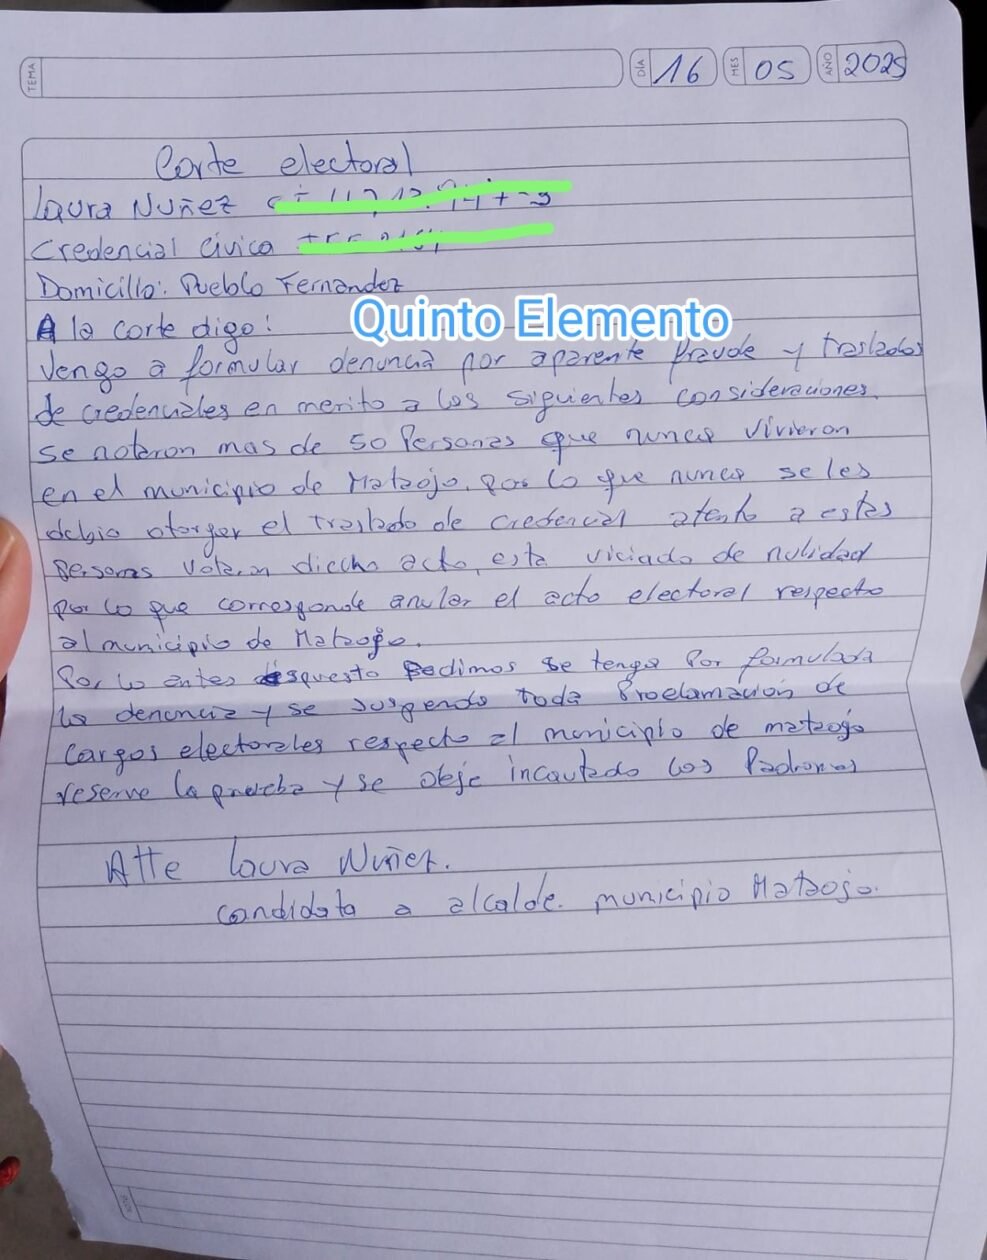 TEMA
DÍA 16 MES 05 AÑO 2025
Corte electoral
Laura Nuñez
Credencial Cívica
Domicilio: Pueblo Fernandez
A la corte digo:
Quinto Elemento
Vengo a formular denuncia por aparente fraude y traslados
de credenciales en merito a los siguientes consideraciones.
se notaron mas de 50 Personas que nunca vivieron
en el municipio de Mataojo, por lo que nunca se les
debio otorgar el traslado de credencial atento a estas
personas votaron dicho acto, esta viciado de nulidad
por lo que corresponde anular el acto electoral respecto
al municipio de Mataojo.
Por lo antes espuesto Pedimos se tenga Por formulada
la denuncia y se suspenda toda Proclamación de
Cargos electorales respecto al municipio de mataojo
reserve la prueba y se deje incautado los Padrones
Atte Laura Nuñez.
candidata a alcalde. municipio Mataojo.